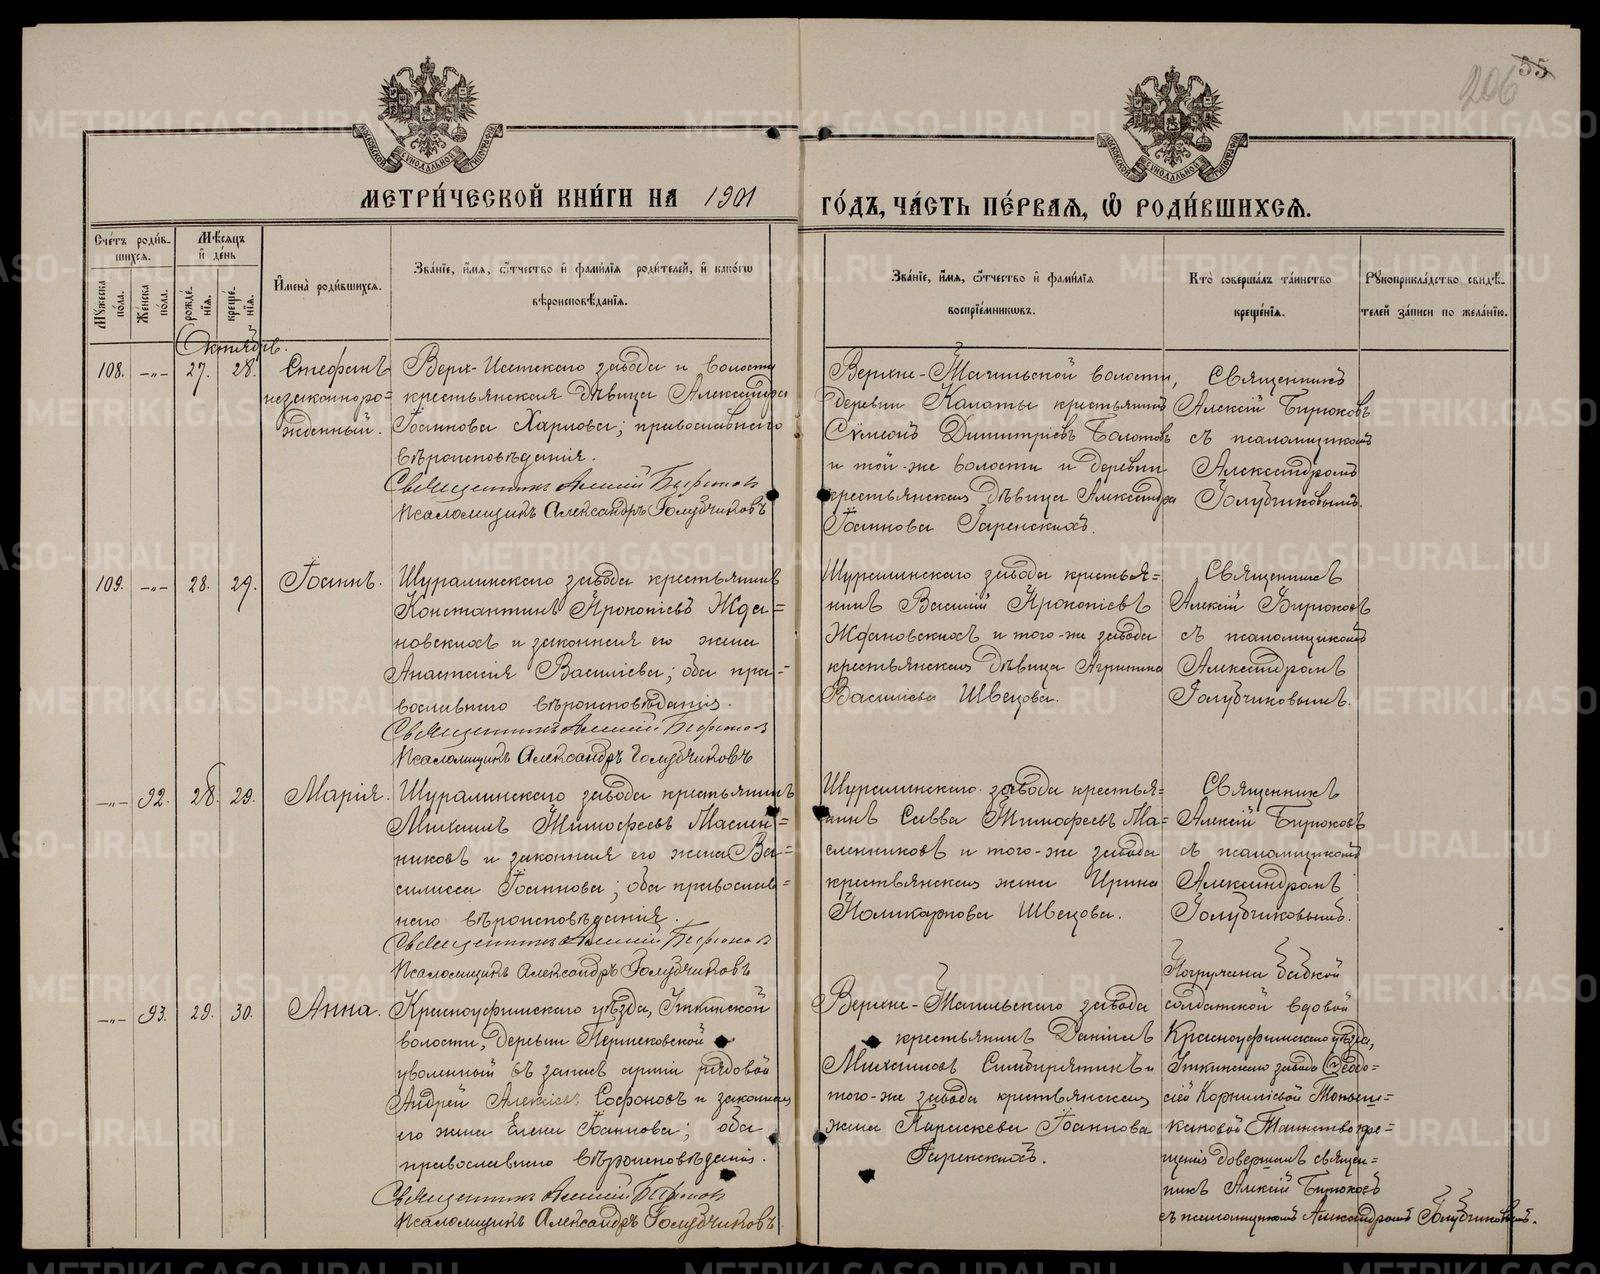 206 55
МОСКОВСКОЙ СѴНОДАЛЬНОЙ ТИПОГРАФІИ
МОСКОВСКОЙ СѴНОДАЛЬНОЙ ТИПОГРАФІИ
МЕТРИ́ЧЕСКОЙ КНИ́ГИ НА 1901
ГО́ДЪ, ЧА́СТЬ ПЕ́РВАѦ, Ѡ҆ РОДИ́ВШИХСѦ.
Сче́тъ роди́в-
шихся.
Мѣ́сяцъ
и҆ де́нь
Мꙋ́жеска
по́ла.
Же́нска
по́ла.
рожде́-
нїя.
креще́-
нїя.
И҆мена̀ роди́вшихся.
Зва́нїе, и҆́мя, ѻ҆́тчество и҆ фами́лїя роди́телей, и҆ како́гѡ
вѣроисповѣ́данїя.
Зва́нїе, и҆́мя, ѻ҆́тчество и҆ фами́лїя
воспрїе́мникѡвъ.
Кто̀ соверша́лъ та́инство
креще́нїя.
Рꙋкоприкла́дство свидѣ́-
телей за́писи по жела́нїю.
Октябрь.
108. -"- 27. 28. Стефанъ
незаконноро=
жденный.
Верх-Исетскаго завода и волости
крестьянская дѣвица Александра
Іоаннова Харлова; православнаго
вѣроисповѣданія.
Священникъ Алексій Бирюковъ
Псаломщикъ Александръ Голубчиковъ
Верхне-Тагильской волости,
деревни Калаты крестьянинъ
Сѵмеонъ Димитріевъ Болотовъ
и той-же волости и деревни
крестьянская дѣвица Александра
Іоаннова Гаренскихъ.
Священникъ
Алексій Бирюковъ
съ псаломщикомъ
Александромъ
Голубчиковымъ.
109. -"- 28. 29. Іоаннъ.
Шуралинскаго завода крестьянинъ
Константинъ Прокопіевъ Жда=
новскихъ и законная его жена
Анастасія Василіева; оба пра=
вославнаго вѣроисповѣданія.
Священникъ Алексій Бирюковъ
Псаломщикъ Александръ Голубчиковъ
Шуралинскаго завода крестья=
нинъ Василій Прокопіевъ
Ждановскихъ и того-же завода
крестьянская дѣвица Агрипина
Василіева Швецова.
Священникъ
Алексій Бирюковъ
съ псаломщикомъ
Александромъ
Голубчиковымъ.
-"- 92. 28. 29. Марія.
Шуралинскаго завода крестьянинъ
Михаилъ Тимофеевъ Маслен=
никовъ и законная его жена Ва=
силисса Іоаннова; оба православ=
наго вѣроисповѣданія.
Священникъ Алексій Бирюковъ
Псаломщикъ Александръ Голубчиковъ
Шуралинскаго завода крестья=
нинъ Савва Тимофеевъ Ма=
сленниковъ и того-же завода
крестьянская жена Ирина
Поликарпова Швецова.
Священникъ
Алексій Бирюковъ
съ псаломщикомъ
Александромъ
Голубчиковымъ.
-"- 93. 29. 30. Анна.
Красноуфимскаго уѣзда, Уткинской
волости, деревни
уволенный въ запасъ арміи рядовой
Андрей Алексіевъ Сафоновъ и законная
его жена Елена Іоаннова; оба
православнаго вѣроисповѣданія.
Священникъ Алексій Бирюковъ
Псаломщикъ Александръ Голубчиковъ.
Верхне-Тагильскаго завода
крестьянинъ Даніилъ
Михаиловъ и
того-же завода крестьянская
жена Параскева Іоаннова
Гаренскихъ.
Погружена бабкой
солдатской вдовой
Красноуфимскаго уѣзда,
Уткинскаго завода Ѳеодо=
сіей Корниліевой
Таинство кре=
щенія довершалъ священ=
никъ Алексій Бирюковъ
съ псаломщикомъ Александромъ Голубчиковымъ.
METRIKI.GASO-URAL.RU